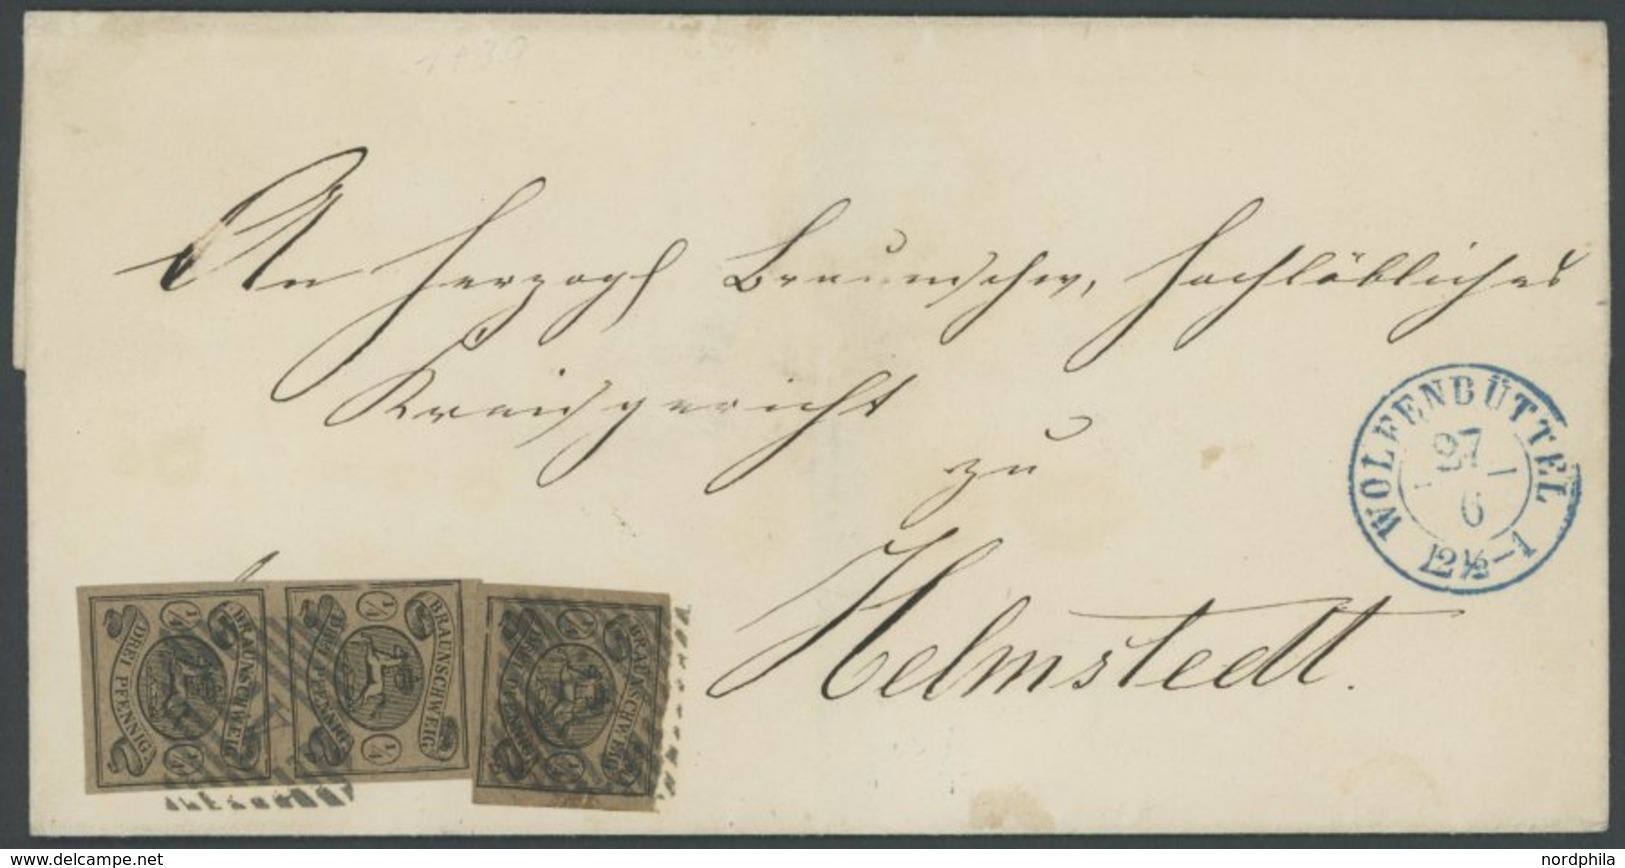 An Herzogl Braunschw, hochlöbliches
Kreisgericht
zu
Helmstedt.
WOLFENBÜTTEL
27
6
12½-1
BRAUNSCHWEIG
DREI PFENNIG
1/4
1/4
BRAUNSCHWEIG
DREI PFENNIG
1/4
1/4
BRAUNSCHWEIG
DREI PFENNIG
1/4
1/4
www.delcampe.net
nordphila